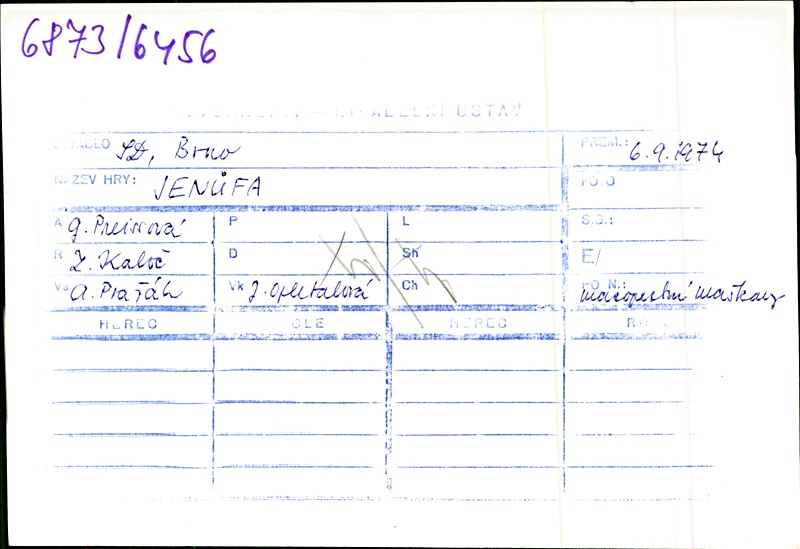 6873/6456
DIVADELNÍ ÚSTAV
DIVADLO SD, Brno PREM.: 6.9.1974
NÁZEV HRY: JENŮFA FO.O
A G. Preissová P L S.Q.:
R Z. Kaloč D Sh E/
Vs A. Pražák Vk J. Opletalová Ch PO N.: masopustní maškary
HEREC ROLE HEREC ROLE